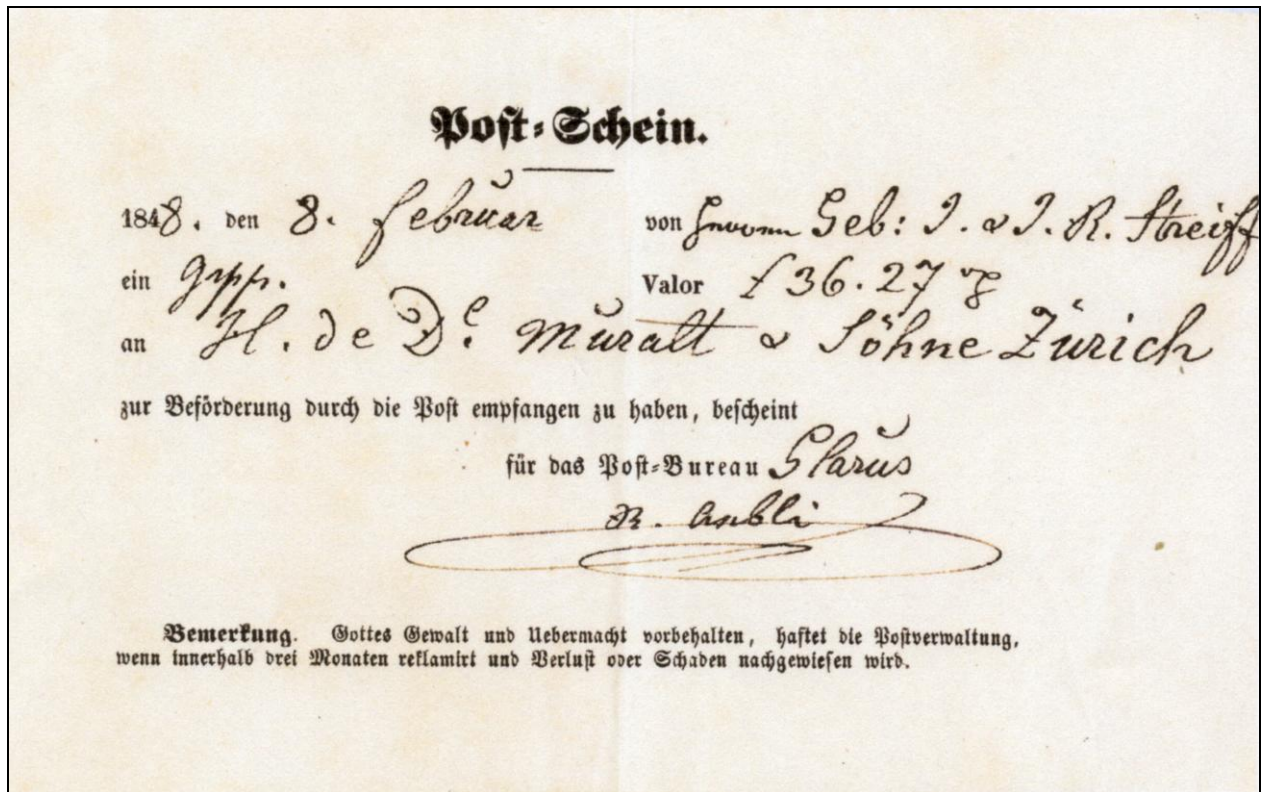 Post-Schein.
1848. den 8. Februar von Herren Geb: J. & J. R. Streiff
ein grpp. Valor f 36.27
an H. de Dl. Muralt & Söhne Zürich
zur Beförderung durch die Post empfangen zu haben, bescheint
für das Post-Bureau Glarus
R. Aebli
Bemerkung. Gottes Gewalt und Uebermacht vorbehalten, haftet die Postverwaltung,
wenn innerhalb drei Monaten reklamirt und Verlust oder Schaden nachgewiesen wird.